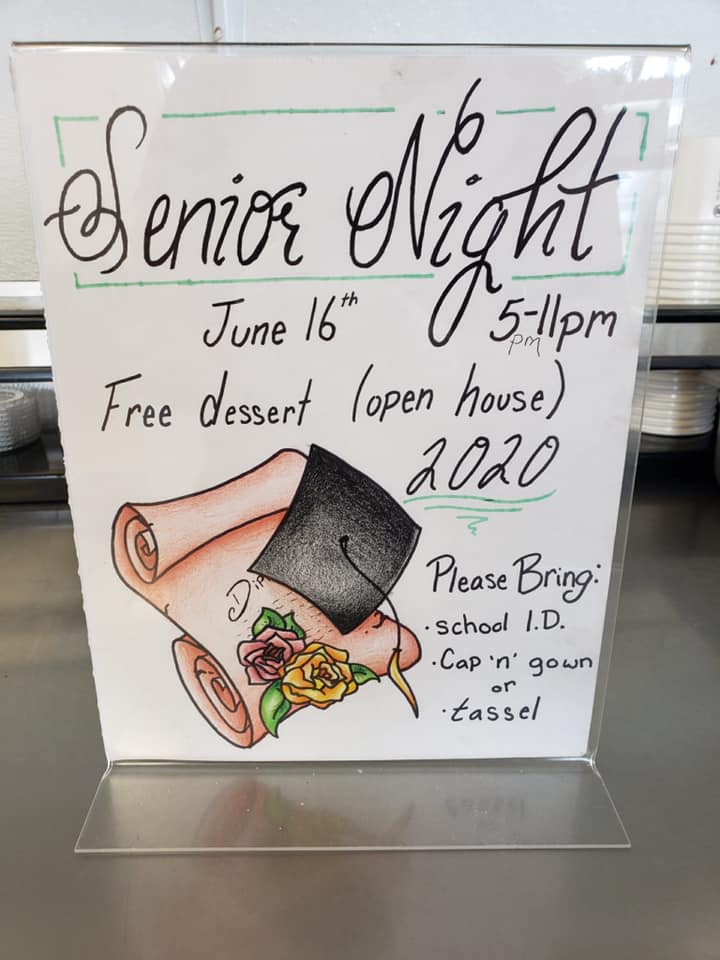 Senior Night
June 16th 5-11pm
pm
Free dessert (open house)
2020
Dip
Please Bring:
· school I.D.
· Cap 'n' gown
or
· tassel